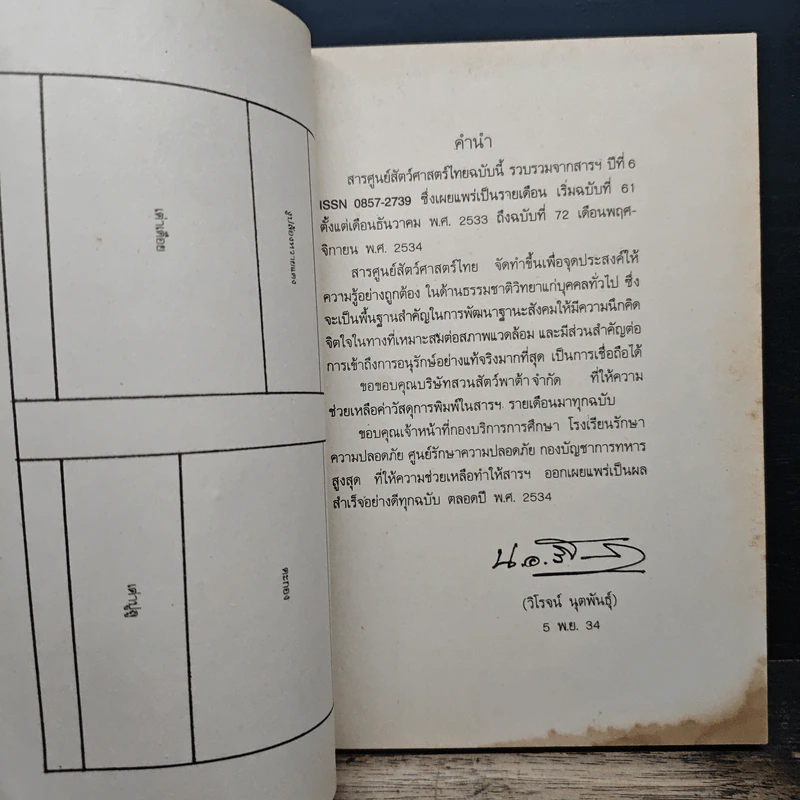 เต่าเดือย
งูเปลี่ยวทรายแดง
เต่าปูลู
ตะกอง
คำนำ
สารศูนย์สัตว์ศาสตร์ไทยฉบับนี้ รวบรวมจากสารฯ ปีที่ 6
ISSN 0857-2739 ซึ่งเผยแพร่เป็นรายเดือน เริ่มฉบับที่ 61
ตั้งแต่เดือนธันวาคม พ.ศ. 2533 ถึงฉบับที่ 72 เดือนพฤศ-
จิกายน พ.ศ. 2534
สารศูนย์สัตว์ศาสตร์ไทย จัดทำขึ้นเพื่อจุดประสงค์ให้
ความรู้อย่างถูกต้อง ในด้านธรรมชาติวิทยาแก่บุคคลทั่วไป ซึ่ง
จะเป็นพื้นฐานสำคัญในการพัฒนาฐานะสังคมให้มีความนึกคิด
จิตใจในทางที่เหมาะสมต่อสภาพแวดล้อม และมีส่วนสำคัญต่อ
การเข้าถึงการอนุรักษ์อย่างแท้จริงมากที่สุด เป็นการเชื่อถือได้
ขอขอบคุณบริษัทสวนสัตว์พาต้า จำกัด ที่ให้ความ
ช่วยเหลือค่าวัสดุการพิมพ์ในสารฯ รายเดือนมาทุกฉบับ
ขอบคุณเจ้าหน้าที่กองบริการการศึกษา โรงเรียนรักษา
ความปลอดภัย ศูนย์รักษาความปลอดภัย กองบัญชาการทหาร
สูงสุด ที่ให้ความช่วยเหลือทำให้สารฯ ออกเผยแพร่เป็นผล
สำเร็จอย่างดีทุกฉบับ ตลอดปี พ.ศ. 2534
น.อ.
(วิโรจน์ นุตพันธุ์)
5 พ.ย. 34